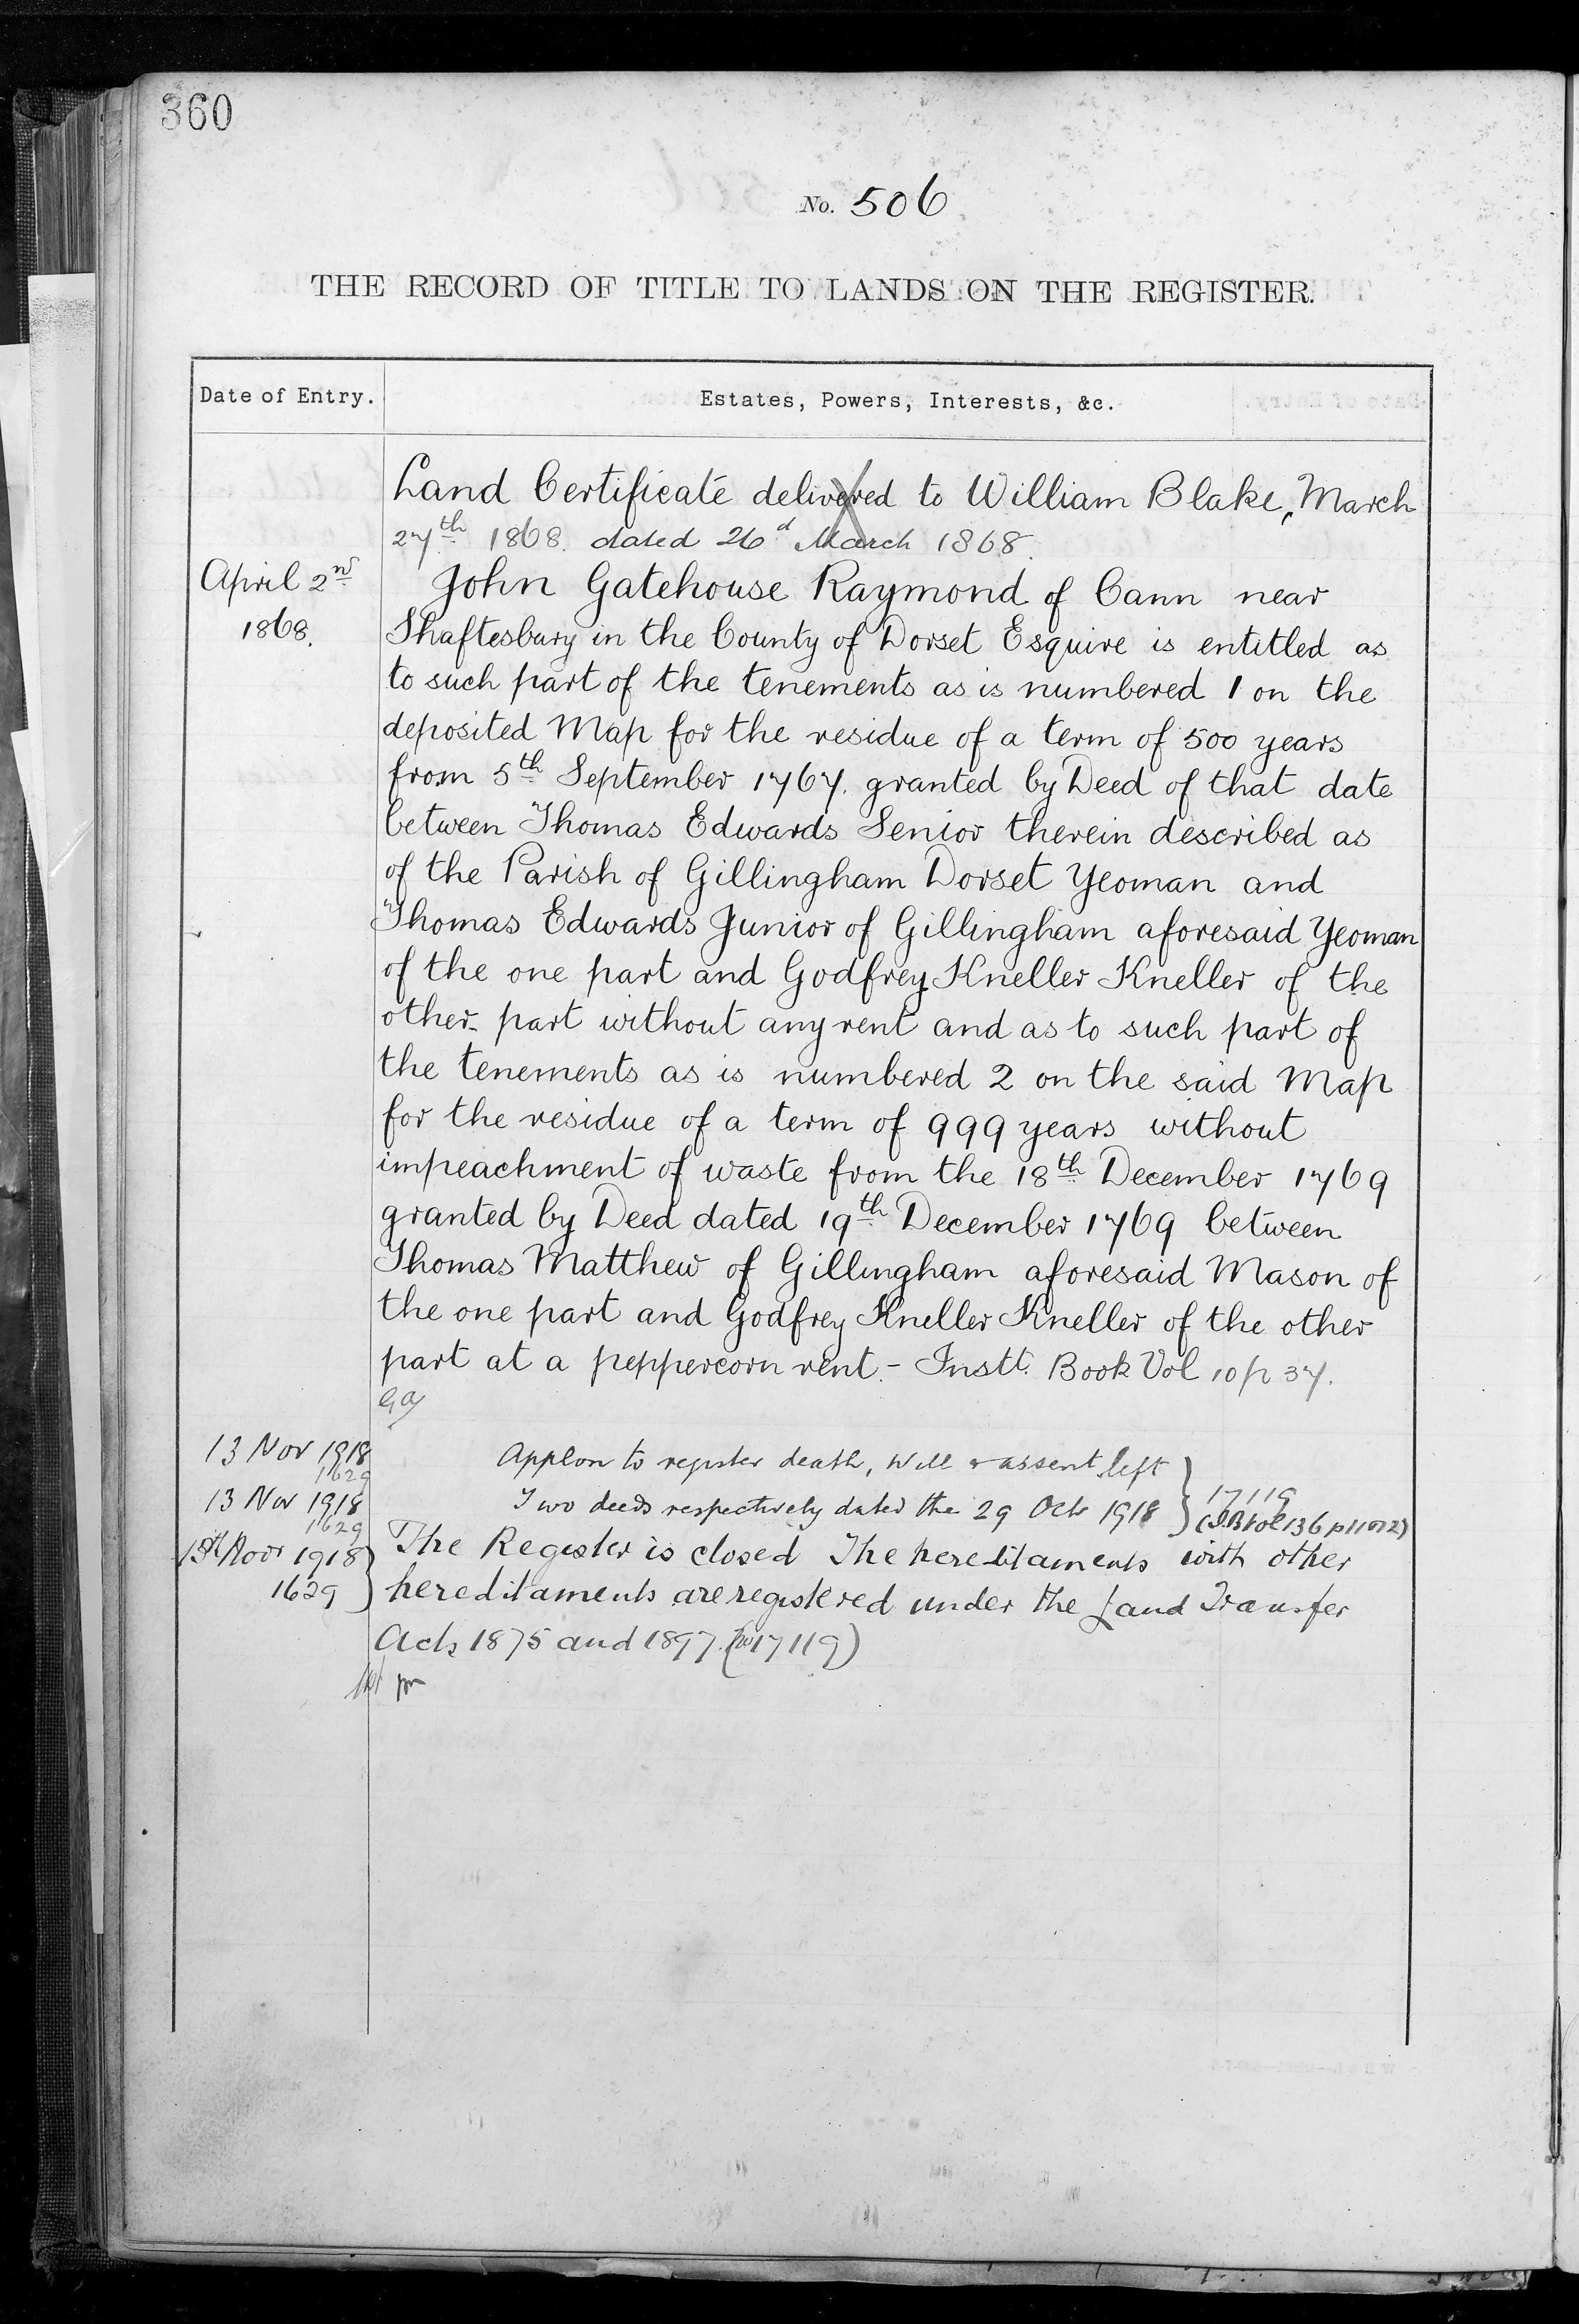 360
No. 506
THE RECORD OF TITLE TO LANDS ON THE REGISTER.
Date of Entry.
Estates, Powers, Interests, &c.
Land Certificate delivered to William Blake, March
27th 1868. dated 26d March 1868.
April 2nd
1868.
John Gatehouse Raymond of Cann near
Shaftesbury in the County of Dorset Esquire is entitled as
to such part of the tenements as is numbered 1 on the
deposited Map for the residue of a term of 500 years
from 5th September 1767. granted by Deed of that date
between Thomas Edwards Senior therein described as
of the Parish of Gillingham Dorset Yeoman and
Thomas Edwards Junior of Gillingham aforesaid Yeoman
of the one part and Godfrey Kneller Kneller of the
other part without any rent and as to such part of
the tenements as is numbered 2 on the said Map
for the residue of a term of 999 years without
impeachment of waste from the 18th December 1769
granted by Deed dated 19th December 1769 between
Thomas Matthew of Gillingham aforesaid Mason of
the one part and Godfrey Kneller Kneller of the other
part at a peppercorn rent.- Instt. Book Vol 10 p 37.
13 Nov 1918
1629
Applon to register death, Will & assent left
13 Nov 1918
1629
Two deeds respectively dated the 29 Octr 1918
17119
(I.B Vol 136 p
13th Novr 1918
1629
The Register is closed The hereditaments with other
hereditaments are registered under the Land Transfer
Acts 1875 and 1897. (no 17119)